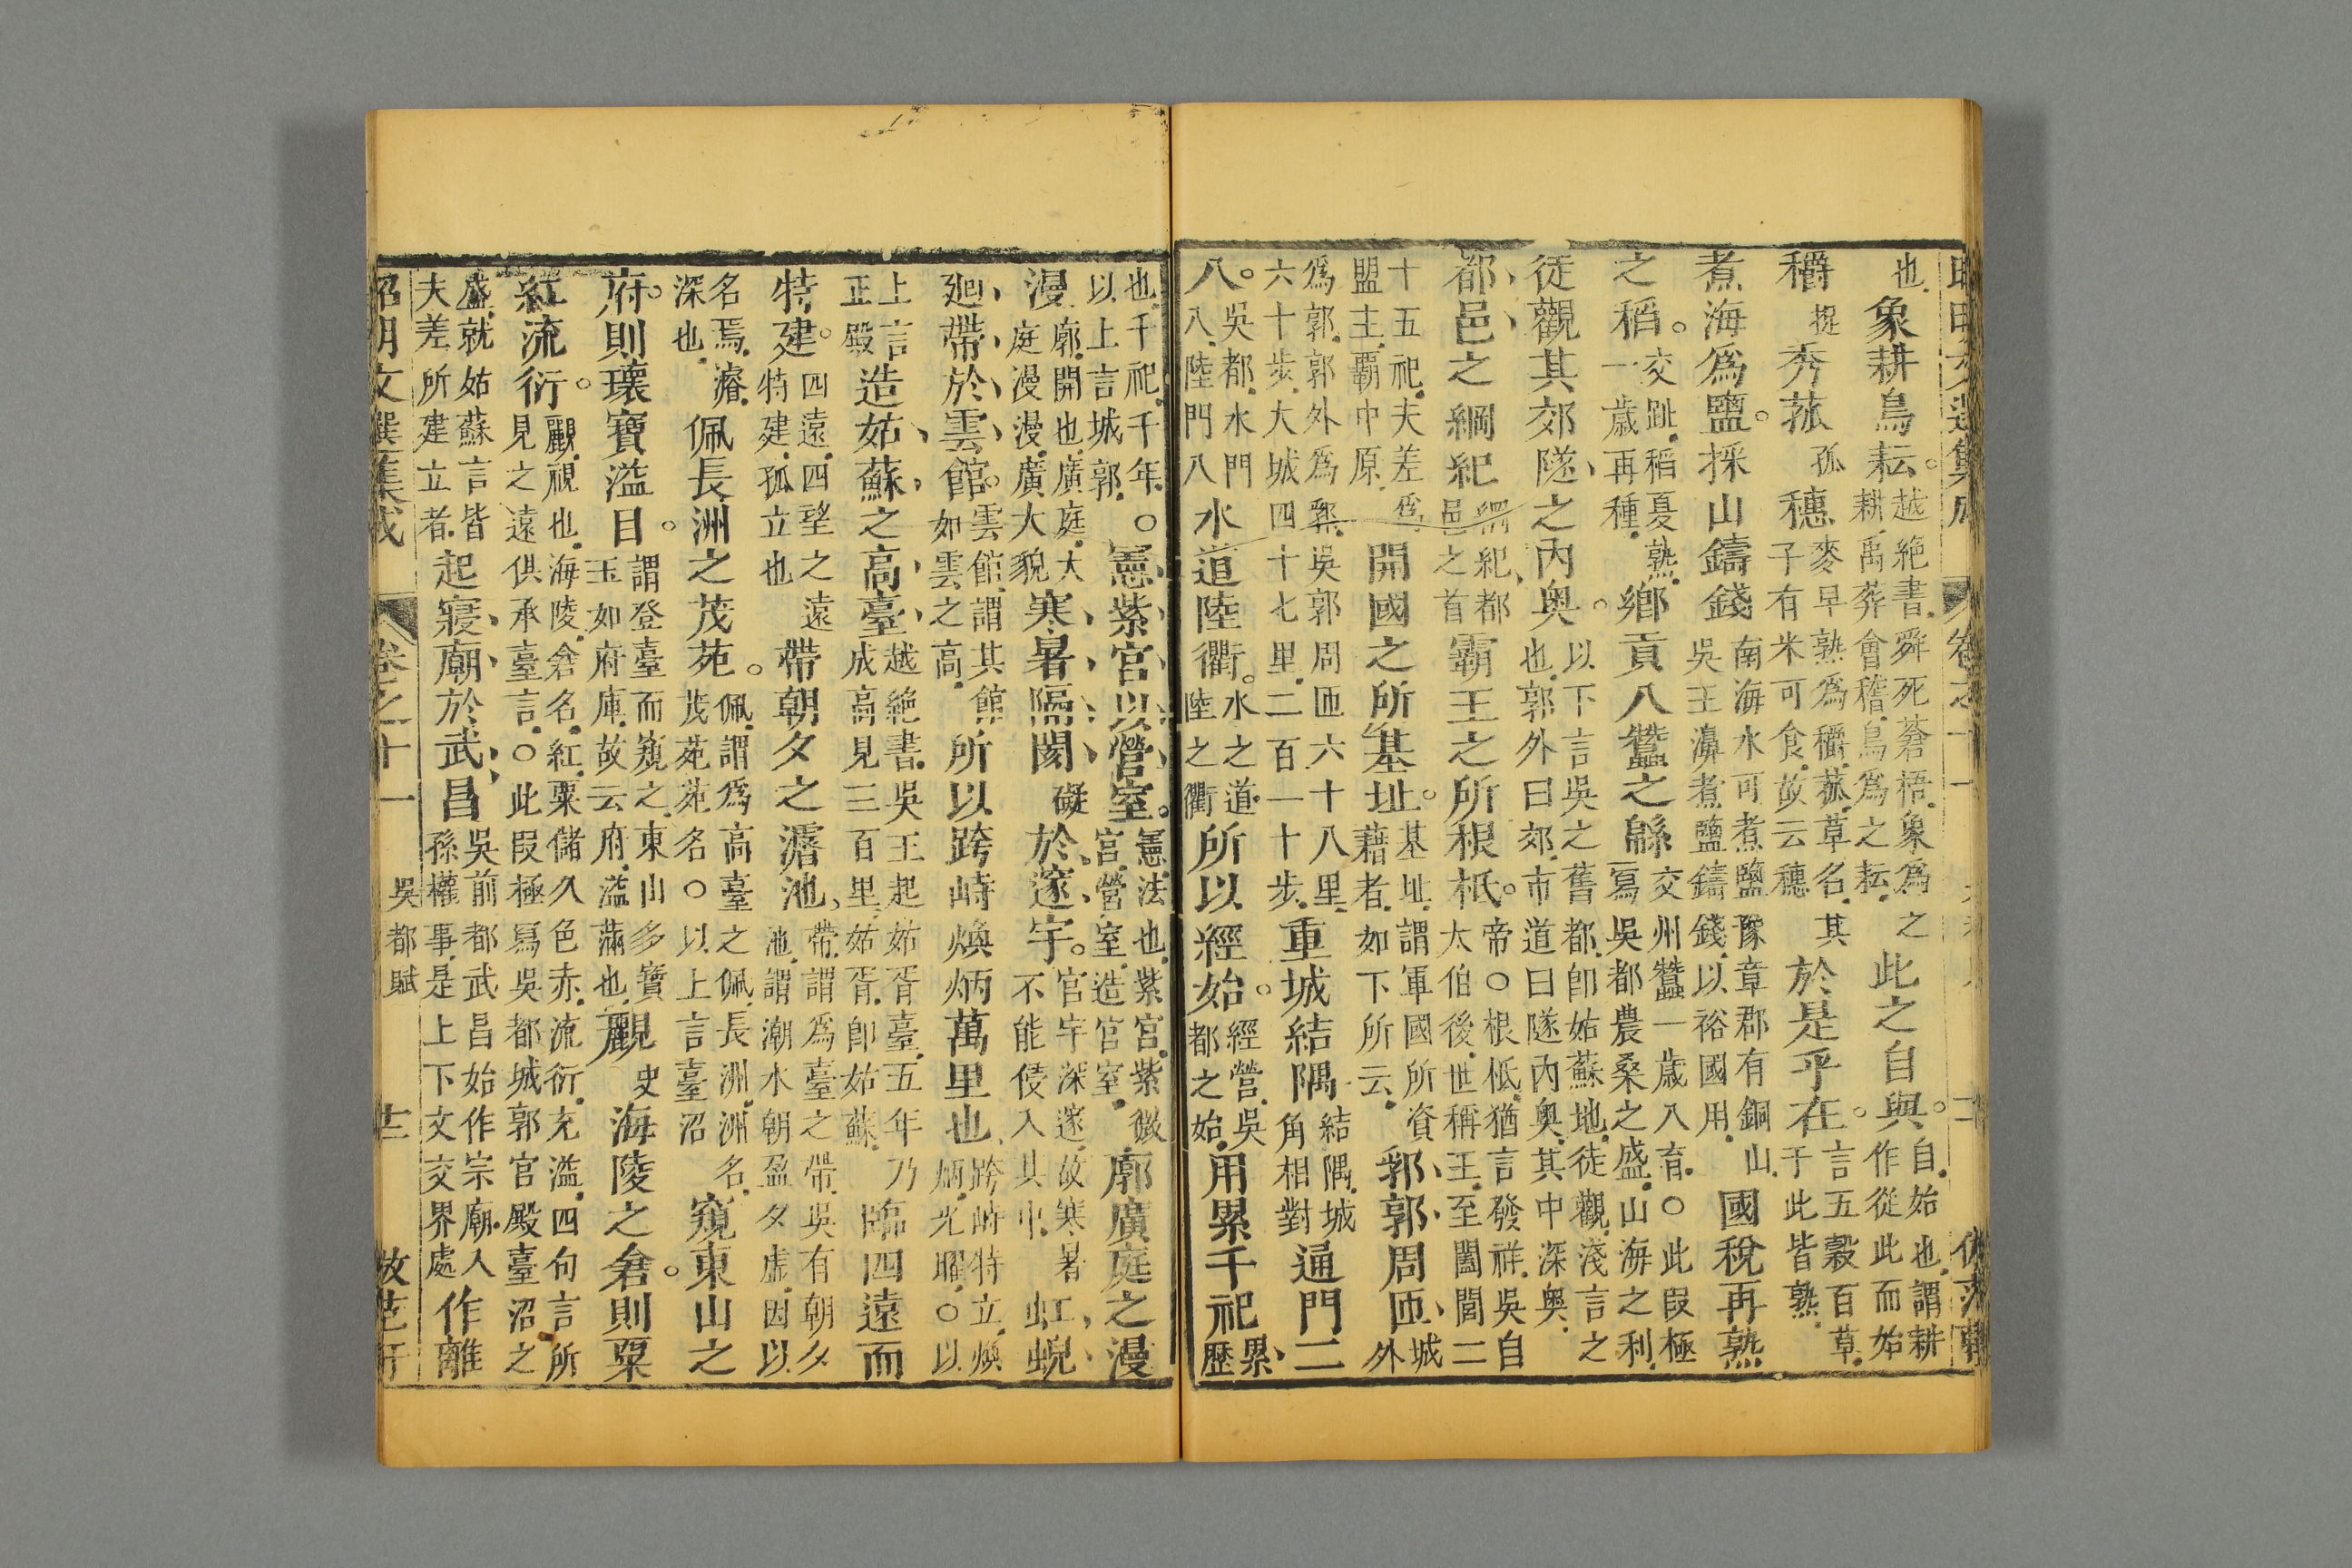 也象耕鳥耘越絕書舜死蒼梧象爲之耕禹葬會稽鳥爲之耘此之自與自始也謂耕作從此而始
穱捉秀菰孤穗麥早熟爲穱菰草名其子有米可食故云穗於是乎在言五穀百草于此皆熟
煮海爲鹽採山鑄錢南海水可煮鹽豫章郡有銅山吳王濞煮鹽鑄錢以裕國用國稅再熟
之稻交趾稻夏熟一歲再種鄉貢八蠶之緜交州蠶一歲八育○此叚極寫吳都農桑之盛山海之利
徒觀其郊隧之內奥以下言吳之舊都卽姑蘇地徒觀淺言之也郭外曰郊市道曰隧內奥其中深奥
都邑之綱紀綱紀都邑之首霸王之所根柢帝○根柢猶言發祥吳自太伯後世稱王至闔閭二
十五祀夫差爲盟主霸中原開國之所基址基址謂軍國所資藉者如下所云郛郭周匝城外
爲郭郭外爲郛吳郭周匝六十八里六十步大城四十七里二百一十步重城結隅結隅城角相對通門二
八吳都水門八陸門八水道陸衢水之道陸之衢所以經始經營吳都之始用累千祀累歷
也千祀千年以上言城郭○憲紫宮以營室憲法也紫宮紫微宮營室造宮室廓廣庭之漫
漫廓開也廣庭大庭漫漫廣大貌寒暑隔閡礙於邃宇宮宇深邃故寒暑不能侵入其中虹蜺
廻帶於雲館雲館謂其館如雲之高所以跨峙煥炳萬里也跨峙特立煥炳光曜○以
上言正殿造姑蘇之高臺越絕書吳王起姑胥臺五年乃成高見三百里姑胥卽姑蘇臨四遠而
特建四遠四望之遠特建孤立也帶朝夕之濬池帶謂爲臺之帶吳有朝夕池謂潮水朝盈夕虛因以
名焉濬深也佩長洲之茂苑佩謂爲高臺之佩長洲洲名茂苑苑名○以上言臺沼窺東山之
府則瓌寶溢目謂登臺而窺之東山多寶玉如府庫故云府溢滿也覼史海陵之倉則粟
紅流衍覼視也海陵倉名紅粟儲久色赤流衍充溢四句言所見之遠俱承臺言○此叚極寫吳都城郭宮殿臺沼之
盛就姑蘇言皆夫差所建立者起寢廟於武昌吳前都武昌始作宗廟入孫權事是上下文交界處作離
昭明文選集成 卷之十一 吳都賦